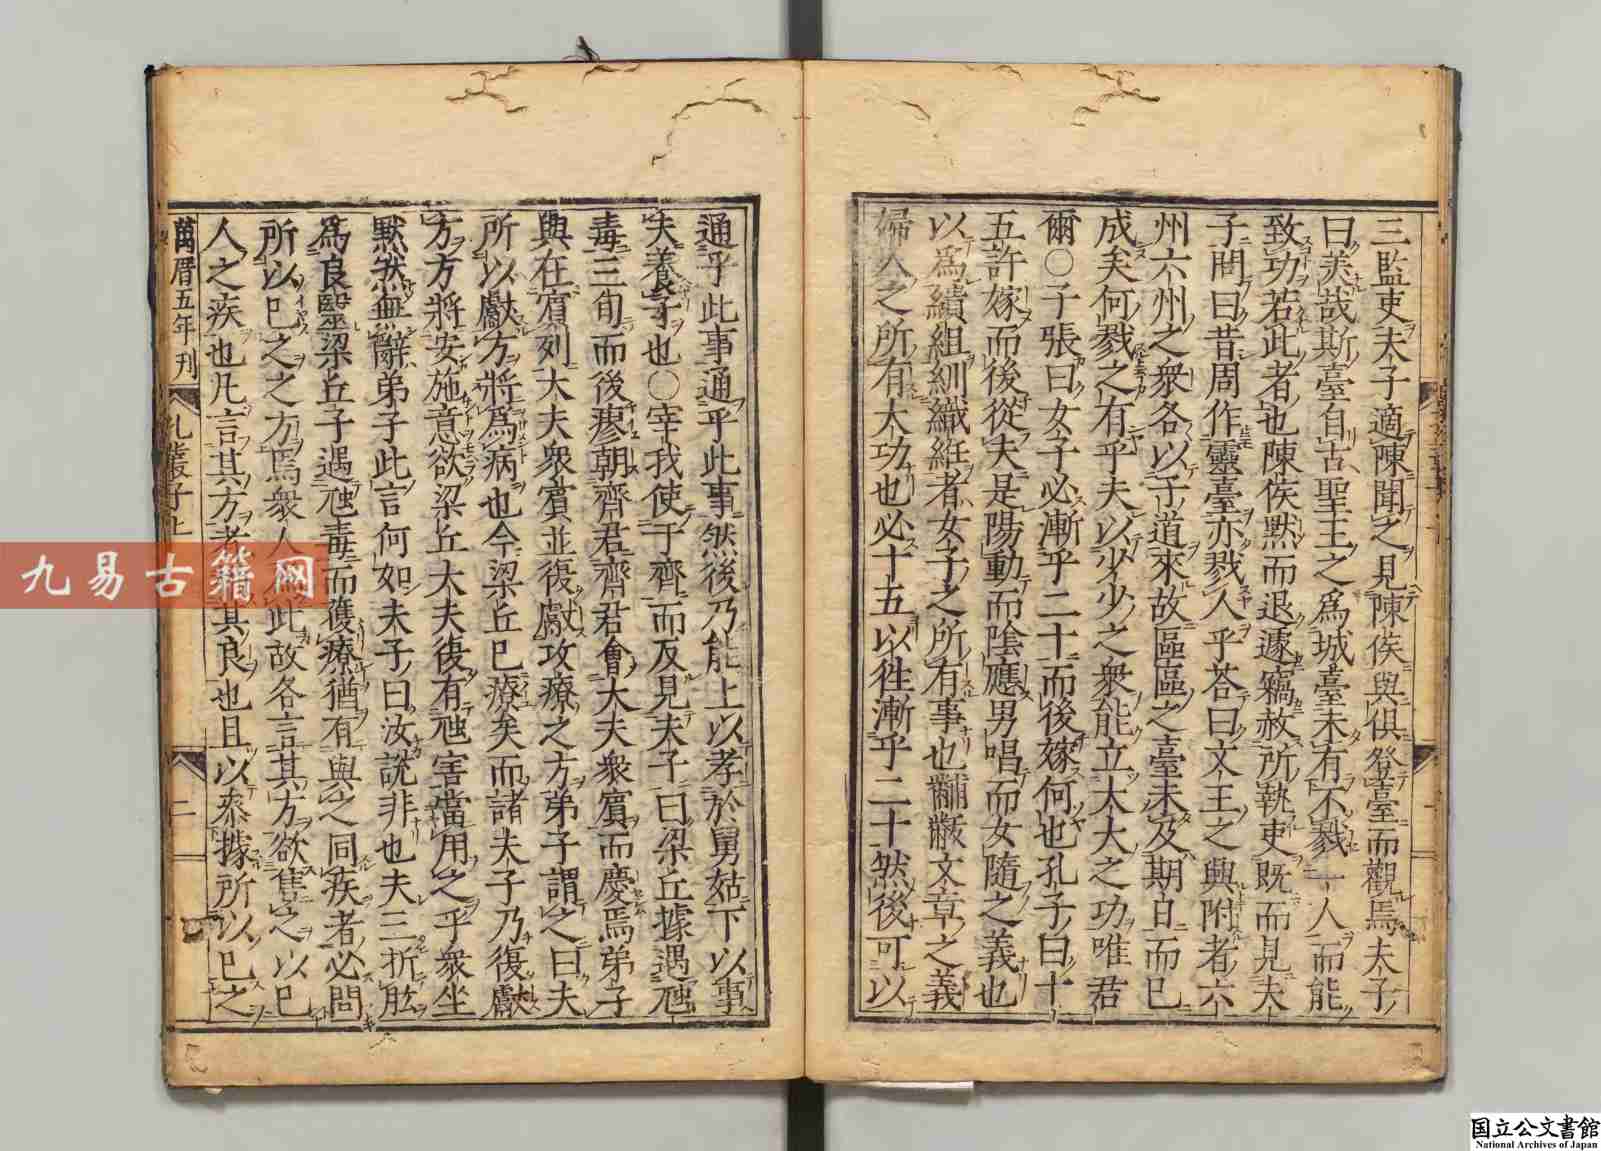 三監吏夫子適陳聞之見陳侯與俱登臺而觀焉夫子
曰美哉斯臺自古聖王之爲城臺未有不戮一人而能
致功若此者也陳侯默而退遽竊赦所執吏既而見夫
子問曰昔周作靈臺亦戮人乎荅曰文王之興附者六
州六州之衆各以子道來故區區之臺未及期日而已
成矣何戮之有乎夫以少少之衆能立大大之功唯君
爾○子張曰女子必漸乎二十而後嫁何也孔子曰十
五許嫁而後從夫是陽動而陰應男唱而女隨之義也
以爲績組紃織紝者女子之所有事也黼黻文章之義
婦人之所有大功也必十五以徃漸乎二十然後可以
通乎此事通乎此事然後乃能上以孝於舅姑下以事
夫養子也○宰我使于齊而反見夫子曰梁丘據遇虺
毒三旬而後瘳朝齊君齊君會大夫衆賓而慶焉弟子
與在賓列大夫衆賓並復獻攻療之方弟子謂之曰夫
所以獻方將爲病也今梁丘已療矣而諸夫子乃復獻
方方將安施意欲梁丘大夫復有虺害當用之乎衆坐
默然無辭弟子此言何如夫子曰汝說非也夫三折肱
爲良毉梁丘子遇虺毒而獲療猶有與之同疾者必問
所以已之之方焉衆人爲此故各言其方欲售之以已
人之疾也凡言其方者稱其良也且以參據所以已之
萬曆五年刊
孔叢子上
二
九易古籍网
国立公文書館
National Archives of Japan